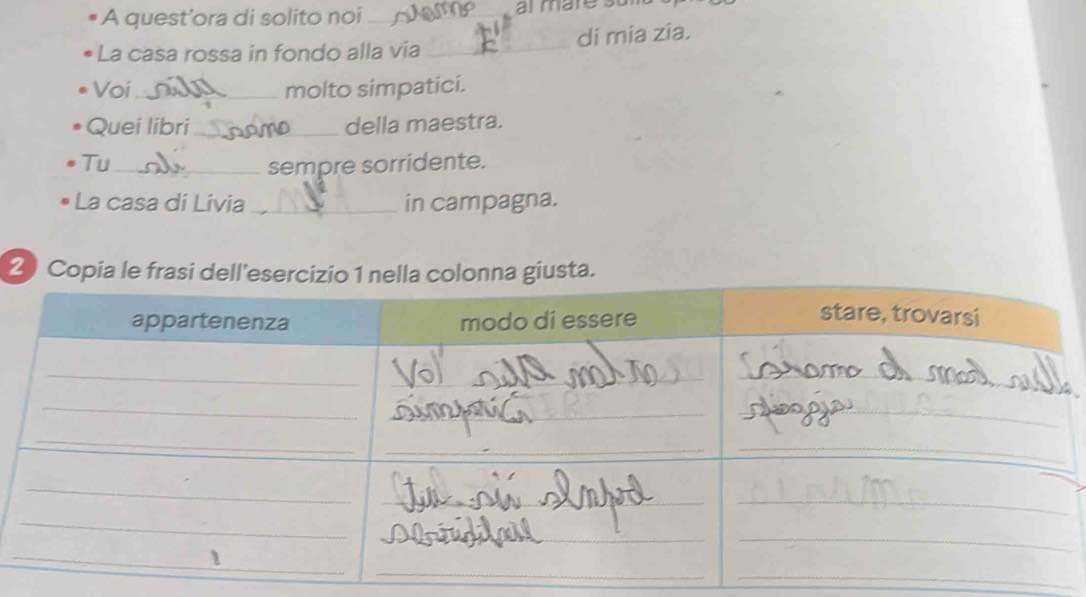 • A quest'ora di solito noi siamo al mare
• La casa rossa in fondo alla via È di mia zia.
• Voi siete molto simpatici.
• Quei libri sono della maestra.
• Tu sei sempre sorridente.
• La casa di Livia è in campagna.
2 Copia le frasi dell'esercizio 1 nella colonna giusta.
appartenenza modo di essere stare, trovarsi
Voi siete molto
simpatici
siamo al mare sulla
spiaggia
tu sei sempre
sorridente